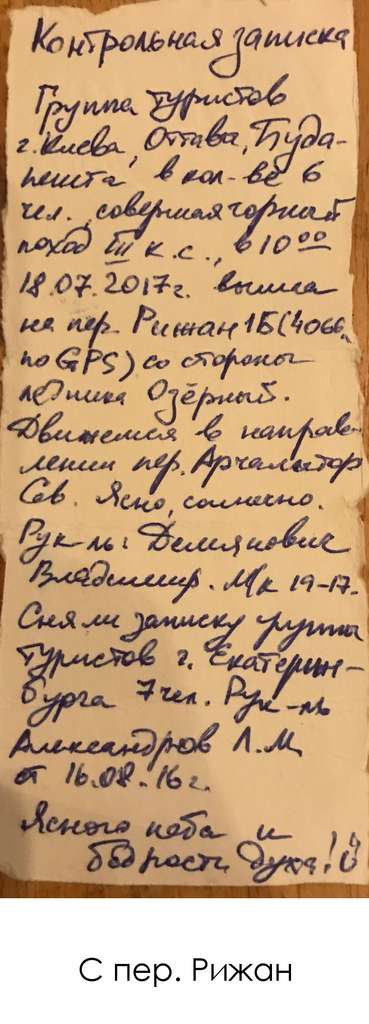 Контрольная записка
Группа туристов
г. Киева, Оттава, Буда-
пешта в кол-ве 6
чел., совершая горный
поход III к.с., в 10⁰⁰
18.07.2017г. вышла
на пер. Рижан 1Б (4066
по GPS) со стороны
ледника Озёрный.
Движемся в направ-
лении пер. Арчалытор
Сев. Ясно, солнечно.
Рук-ль: Демянович
Владимир. М/к 19-17.
Сняли записку группы
туристов г. Екатерин-
бурга 7 чел. Рук-ль
Александров Л.М.
от 16.08.16г.
Ясного неба и
бодрости духа!
С пер. Рижан